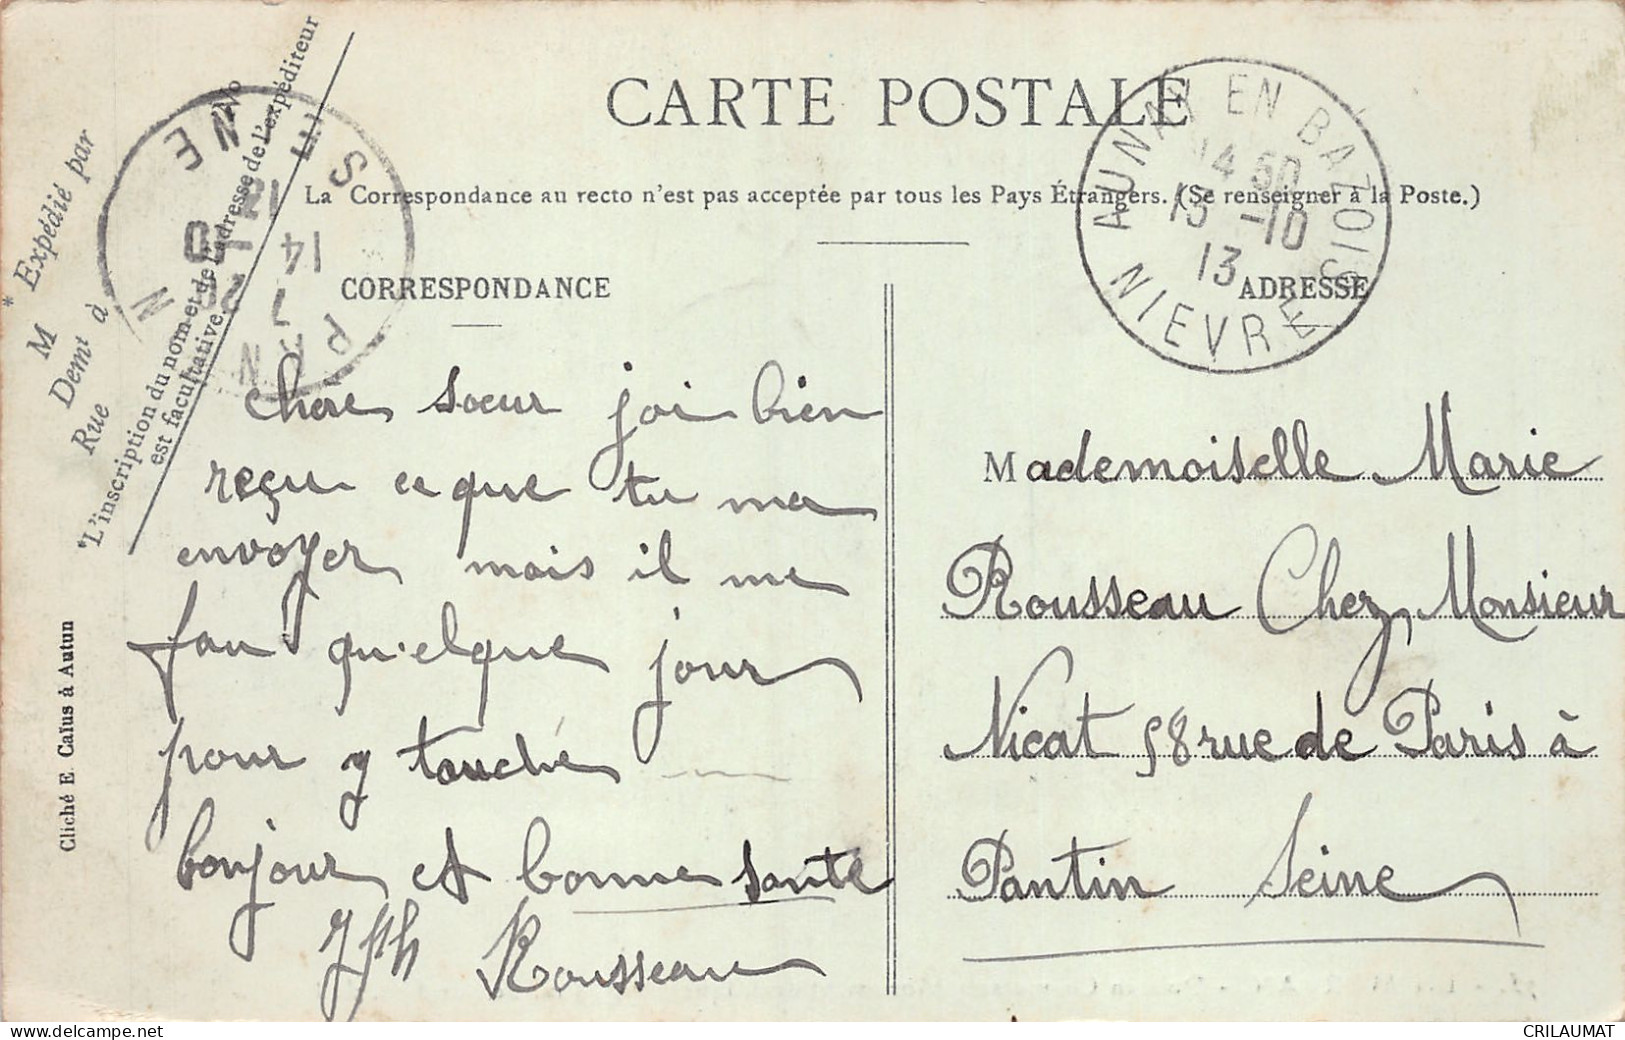 CARTE POSTALE
La Correspondance au recto n'est pas acceptée par tous les Pays Étrangers. (Se renseigner à la Poste.)
CORRESPONDANCE
ADRESSE
* Expédié par
M
Demt à
Rue
No
*L'inscription du nom et de l'adresse de l'expéditeur
est facultative.
Cliché E. Caïus à Autun
AUNAY EN BAZOIS
14 50
13 -10
13
NIEVRE
PANTIN
SEINE
14 -10
13
7 20
chère soeur joi bien
reçu ce que tu ma
envoyer mais il me
fau quelque jour
pour y touché
bonjour et bonne santé
Jph Rousseau
Mademoiselle Marie
Rousseau Chez Monsieur
Nicat 58 rue de Paris à
Pantin Seine
delcampe.net
CRILAUMAT